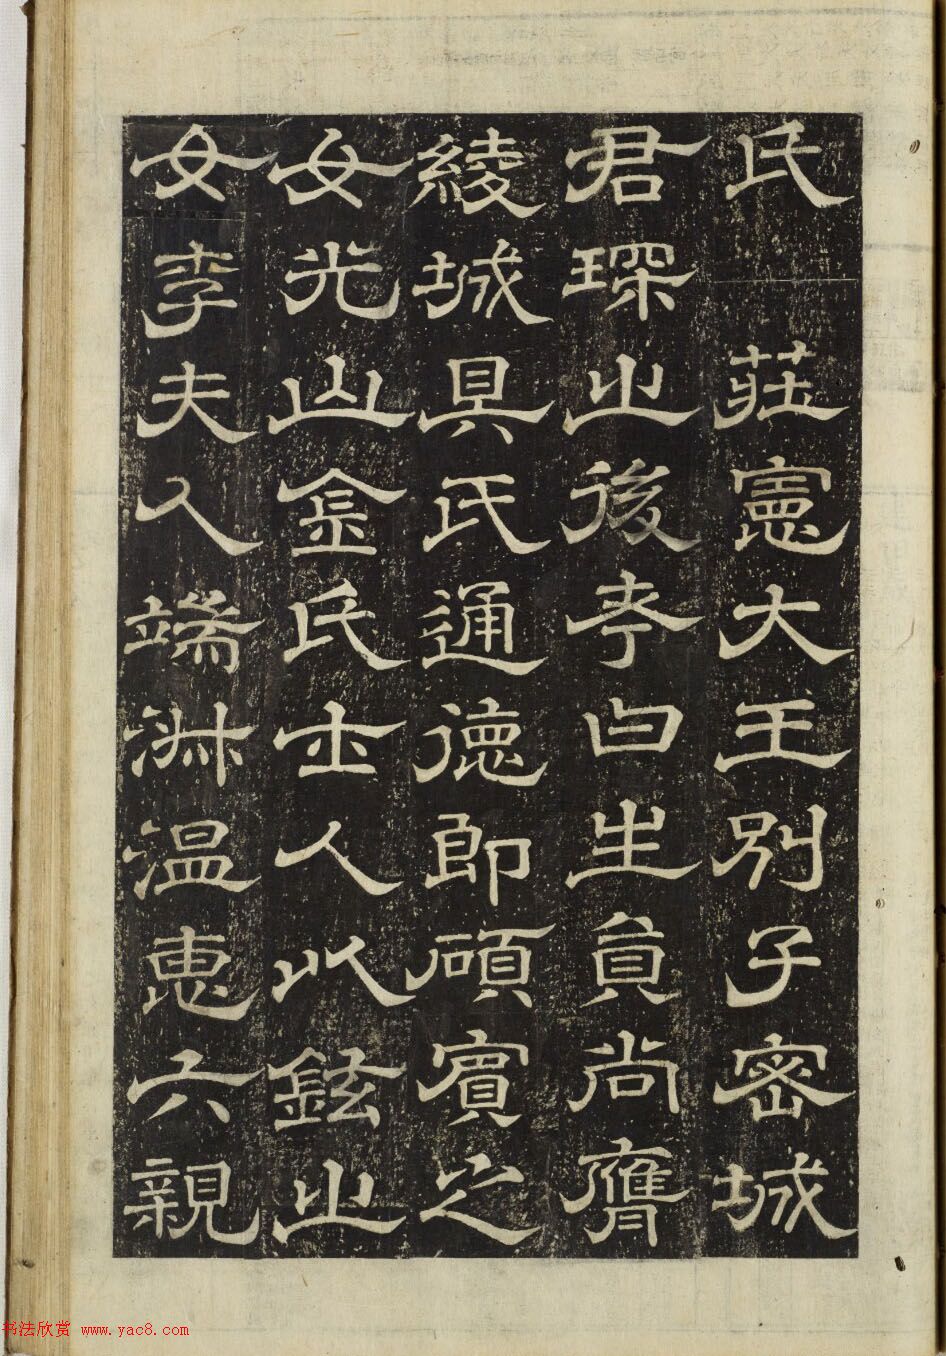 氏 莊憲大王別子密城
君琛之後考曰生員尚膺
綾城具氏通德郎碩賓之
女光山金氏士人以鉉之
女李夫人端淑溫惠六親
书法欣赏 www.yac8.com